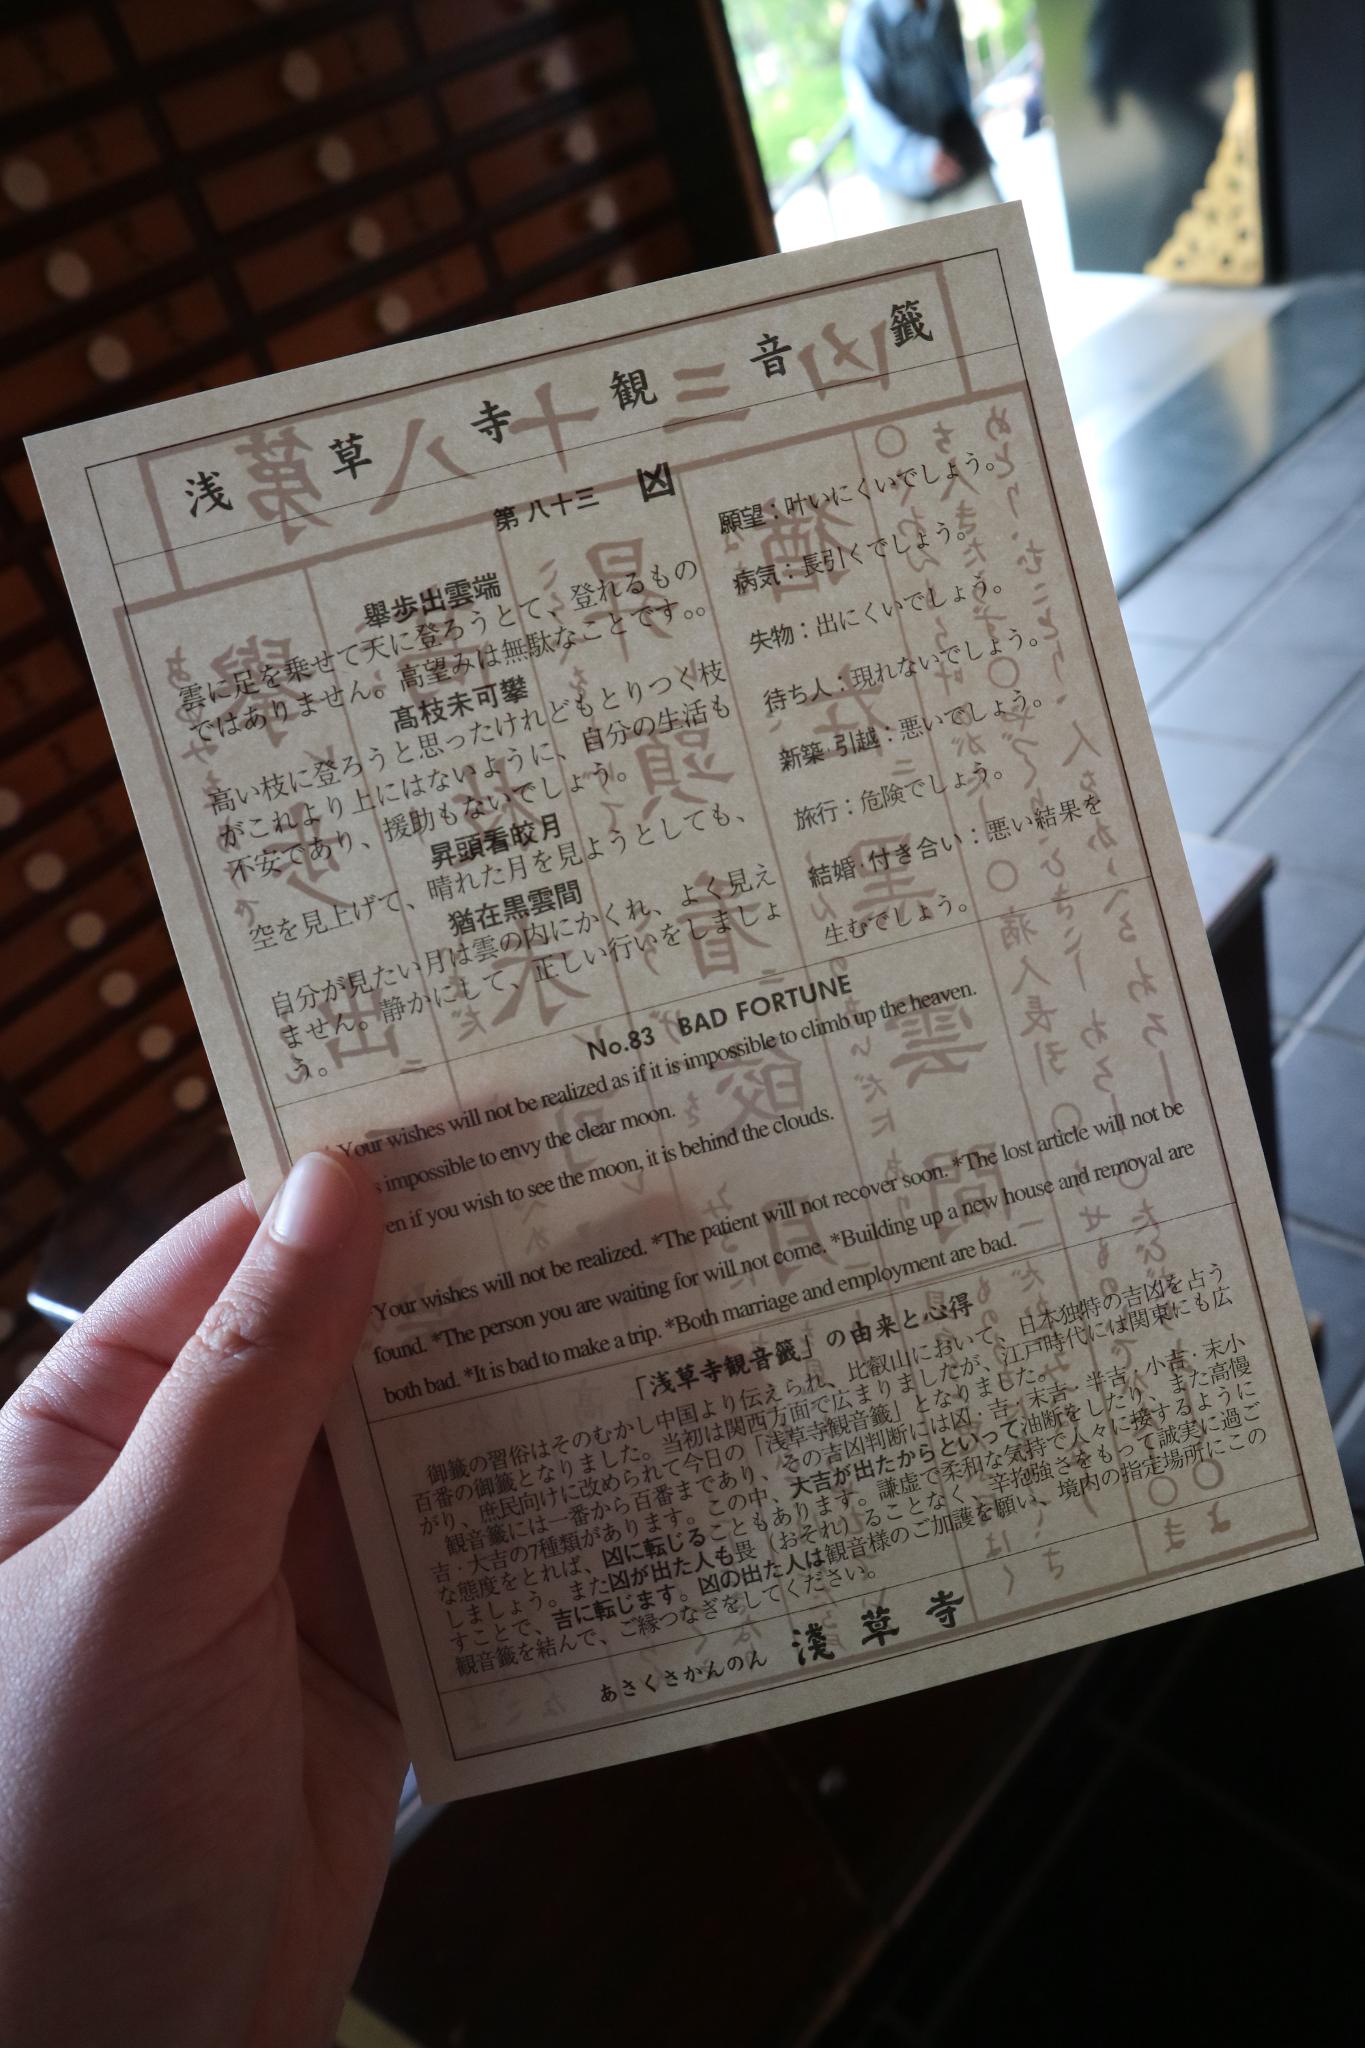 浅草寺観音籤
第八十三 凶
舉歩出雲端
雲に足を乗せて天に登ろうとて、登れるもの
ではありません。高望みは無駄なことです。。
高枝未可攀
高い枝に登ろうと思ったけれどもとりつく枝
がこれより上にはないように、自分の生活も
不安であり、援助もないでしょう。
昇頭看皎月
空を見上げて、晴れた月を見ようとしても、
猶在黒雲間
自分が見たい月は雲の内にかくれ、よく見え
ません。静かにして、正しい行いをしましょ
う。
願望：叶いにくいでしょう。
病気：長引くでしょう。
失物：出にくいでしょう。
待ち人：現れないでしょう。
新築·引越：悪いでしょう。
旅行：危険でしょう。
結婚·付き合い：悪い結果を
生むでしょう。
No.83 BAD FORTUNE
Your wishes will not be realized as if it is impossible to climb up the heaven.
impossible to envy the clear moon.
if you wish to see the moon, it is behind the clouds.
*Your wishes will not be realized. *The patient will not recover soon. *The lost article will not be
found. *The person you are waiting for will not come. *Building up a new house and removal are
both bad. *It is bad to make a trip. *Both marriage and employment are bad.
「浅草寺観音籤」の由来と心得
御籤の習俗はそのむかし中国より伝えられ、比叡山において、日本独特の吉凶を占う
百番の御籤となりました。当初は関西方面で広まりましたが、江戸時代には関東にも広
がり、庶民向けに改められて今日の「浅草寺観音籤」となりました。
観音籤には一番から百番まであり、その吉凶判断には凶·吉·末吉·半吉·小吉·末小
吉·大吉の7種類があります。この中、大吉が出たからといって油断をしたり、また高慢
な態度をとれば、凶に転じることもあります。謙虚で柔和な気持で人々に接するように
しましょう。また凶が出た人も畏（おそれ）ることなく、辛抱強さをもって誠実に過ご
すことで、吉に転じます。凶の出た人は観音様のご加護を願い、境内の指定場所にこの
観音籤を結んで、ご縁つなぎをしてください。
あさくさかんのん 淺草寺